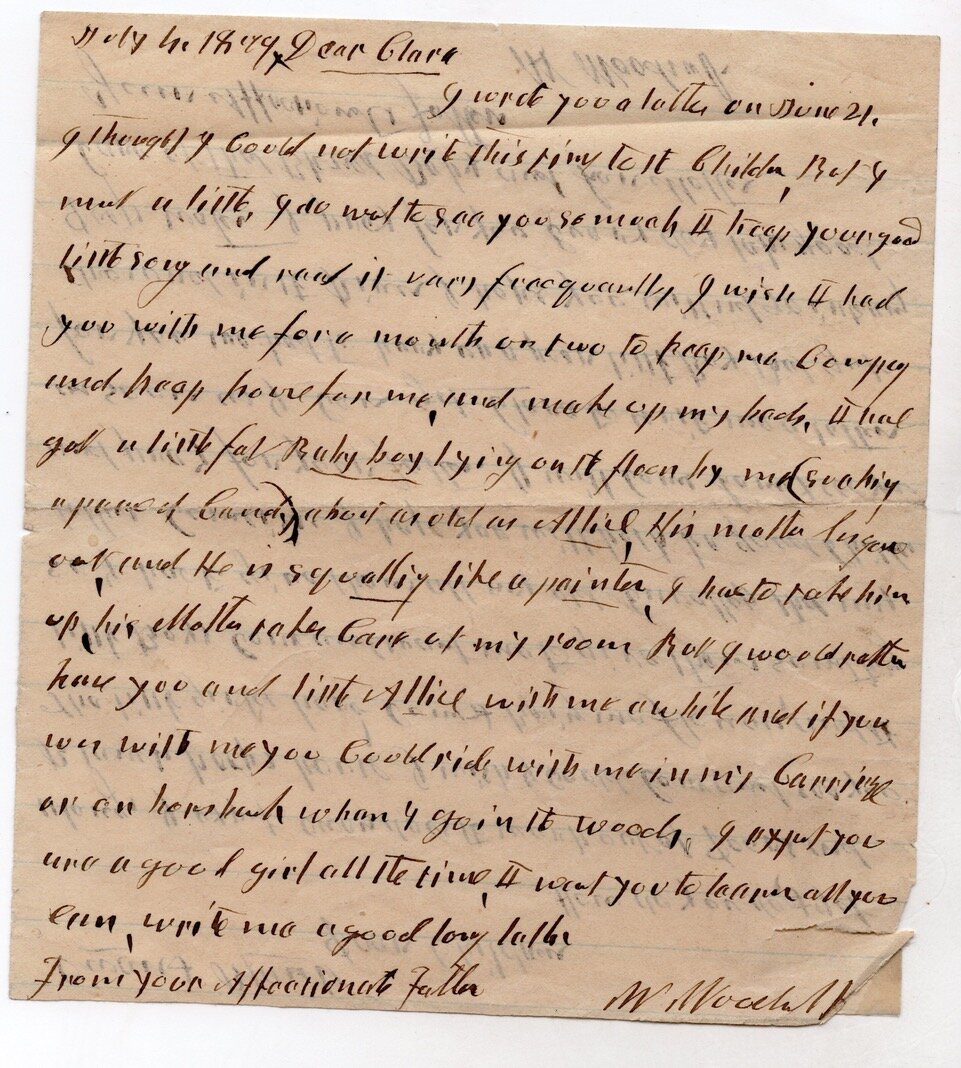 July 4. 1879, Dear Clara
I wrote you a letter on June 21.
I thought I Could not write this time to the Childn, But I
must a little, I do want to see you so much I keep your good
little song and read it very freequantly, I wish I had
you with me for a month or two to keep me Compay
and keep house for me, and make up my beds, I have
got a little fat Baby boy lying on the floor by me (sucking
a peace of Candy) about as old as Allice, His mother has gone
out, and He is squalling like a painter, I have to take him
up, his Mother takes Care of my room But I would rather
have you and little Allice with me awhile and if you
wer with me you Could ride with me in my Carriage
or on horsback when I go in the woods, I expect you
are a good girl all the time, I want you to learn all you
can, write me a good long letter
From your Affectionate Father
W.